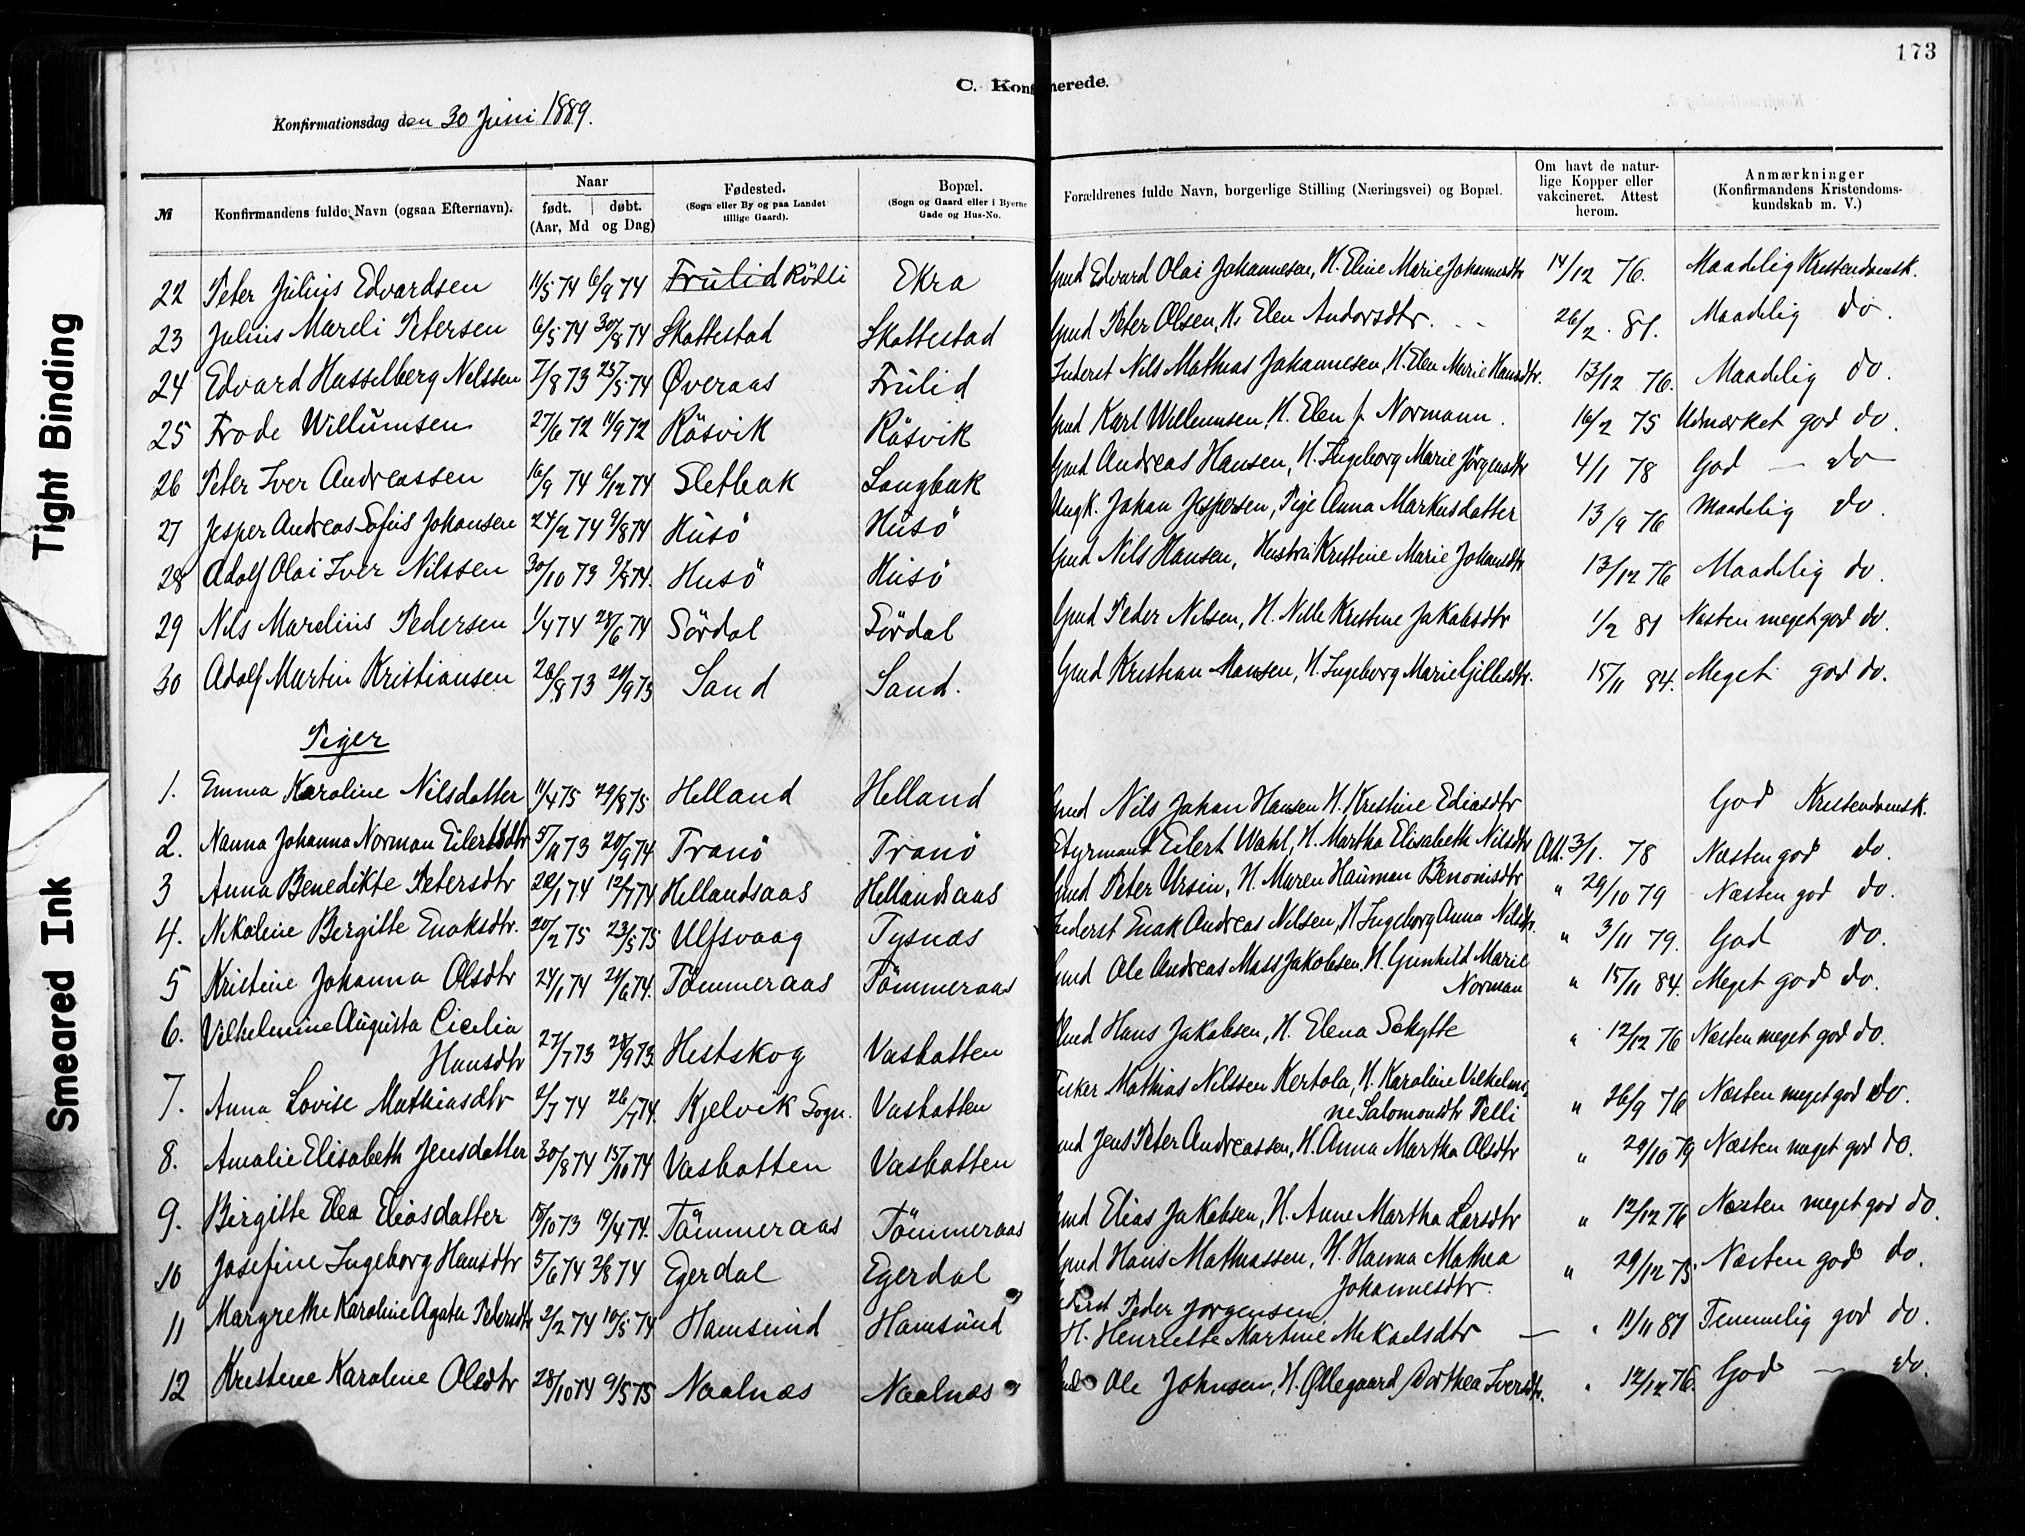 173
C. Konfirmerede.
Konfirmationsdag den 30 Juni 1889.
№ Konfirmandens fulde Navn (ogsaa Efternavn). Naar født. døbt. (Aar, Md og Dag) Fødested. (Sogn eller By og paa Landet tillige Gaard). Bopæl. (Sogn og Gaard eller i Byerne Gade og Hus-No. Forældrenes fulde Navn, borgerlige Stilling (Næringsvei) og Bopæl. Om havt de naturlige Kopper eller vakcineret. Attest herom. Anmærkninger (Konfirmandens Kristendomskundskab m. V.)
22 Peter Julius Edvardsen 11/5 74 6/9 74 Frulid Rödli Ekra Gmd Edvard Olai Johannesen, H. Eline Marie Johannesdtr 14/12 76. Maadelig Kristendomsk.
23 Julius Mareli Petersen 6/5 74 30/8 74 Skottestad Skottestad Gmd Peter Olsen, H. Elen Andorsdtr. 26/2 81. Maadelig do.
24 Edvard Hasselberg Nilssen 7/8 73 25/5 74 Øveraas Frulid Inderst Nils Mathias Johannesen, H. Elen Marie Hansdtr. 13/12 76. Maadelig do.
25 Frode Willumsen 27/6 72 11/9 72 Råsvik Råsvik Gmd Karl Willumsen, H. Elen f. Normann. 16/2 75 Udmærket god do.
26 Peter Iver Andreassen 16/9 74 6/12 74 Sletbak Langbak Gmd Andreas Hansen, H. Ingeborg Marie Jörgensdtr 4/1 78 God — do
27 Jesper Andreas Sofus Johansen 24/2 74 9/8 74 Husö Husö Ungk. Johan Jespersen, Pige Anna Markusdatter 13/9 76 Maadelig do.
28 Adolf Olai Iver Nilssen 30/10 73 9/8 74. Husö Husö Gmd Nils Hansen, Hustru Kristine Marie Johansdtr 13/12 76 Maadelig do.
29 Nils Marelius Pedersen 1/4 74 28/6 74 Sördal Sördal Gmd Peder Nilsen, H. Nille Kristine Jakobsdtr 1/2 81 Næsten meget god do.
30 Adolf Martin Kristiansen 26/8 73 21/9 73 Sand Sand. Gmd Kristian Hansen, H. Ingeborg Marie Gillesdtr. 15/11 84. Meget god do.
Piger
1. Emma Karoline Nilsdatter 11/4 75 29/8 75 Helland Helland Gmd Nils Johan Hansen H. Kristine Eliasdtr God Kristendomsk.
2. Nanna Johanna Norman Eilertsdtr 5/11 73 20/9 74 Tranö Tranö Styrmand Eilert Wahl, H. Martha Elisabeth Nilsdtr Att. 3/1. 78 Næsten god do.
3 Anna Benedikte Petersdtr 20/1 74 12/7 74 Hellandsaas Hellandsaas Gmd Peter Ursin, H. Maren Hauman Benonisdtr " 29/10 79 Næsten god do.
4. Nikoline Bergitte Enoksdtr. 20/2 75 23/5 75 Ulfsvaag Tysnæs Inderst Enok Andreas Nilsen, H Ingeborg Anna Nilsdtr. " 3/11 79. God do.
5 Kristine Johanna Olsdtr 24/1 74 21/6 74. Tömmeraas Tömmeraas Gmd Ole Andreas Mass Jakobsen, H. Gunhild Marie
Norman " 15/11 84. Meget god do.
6. Vilhelmine Augusta Cicilia
Hansdtr 27/7 73 28/9 73 Hestskog Vasbotten Gmd Hans Jakobsen, H. Elena Schytte " 12/12 76 Næsten meget god do.
7. Anna Lovise Mathiasdtr 2/7 74 26/7 74. Kjelvik Sogn. Vasbotten Fisker Mathias Nilssen Kertola, H. Karoline Vilhelmi-
ne Salomonsdtr Pelli " 26/9 76 Næsten meget god do.
8. Amalie Elisabeth Jensdatter 30/8 74 15/10 74 Vasbotten Vasbotten Gmd Jens Peter Andreassen, H. Anna Martha Olsdtr " 29/10 79 Næsten meget god do.
9. Birgitte Elea Eliasdatter 15/10 73 19/4 74. Tömmeraas Tömmeraas Gmd Elias Jakobsen, H. Anne Martha Larsdtr " 12/12 76 Næsten meget god do.
10 Josefine Ingeborg Hansdtr 5/6 74 2/8 74 Egerdal Egerdal Gmd Hans Mathiassen, H. Hanna Mathea
Johannesdtr. " 29/12 75. Næsten god do.
11 Margrethe Karoline Agate Pedersdtr 2/2 74 10/5 74 Hamsund Hamsund Inderst Peder Jorgensen,
H. Henriette Martine Mikaelsdtr — " 11/11 81 Temmelig god do.
12 Kristine Karoline Olsdtr 28/10 74 9/5 75 Naalnæs Naalnæs Gmd Ole Johnsen, H. Øllegaard Dorthea Iversdtr. " 12/12 76. God — do.
Tight Binding
Smeared Ink